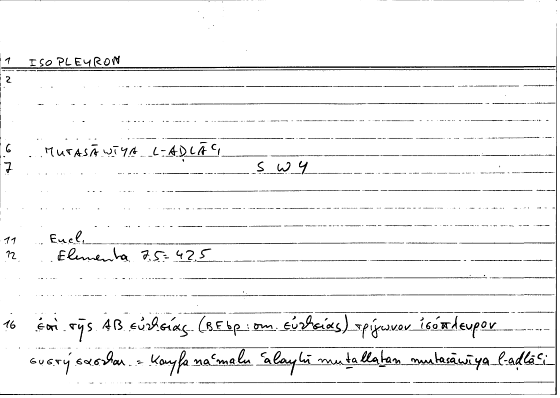 1 ISOPLEYRON
2
6 MUTASĀWIYA L-AḌLĀʿI
7 S W Y
11 Eucl.
12 Elementa 7.5 = 42.5
16 ἐπὶ τῆς AB εὐθείας (BFbp: om. εὐθείας) τρίγωνον ἰσόπλευρον
συστήσασθαι = Kayfa naʿmalu ʿalayhi muṯallaṯan mutasāwiya l-aḍlāʿi